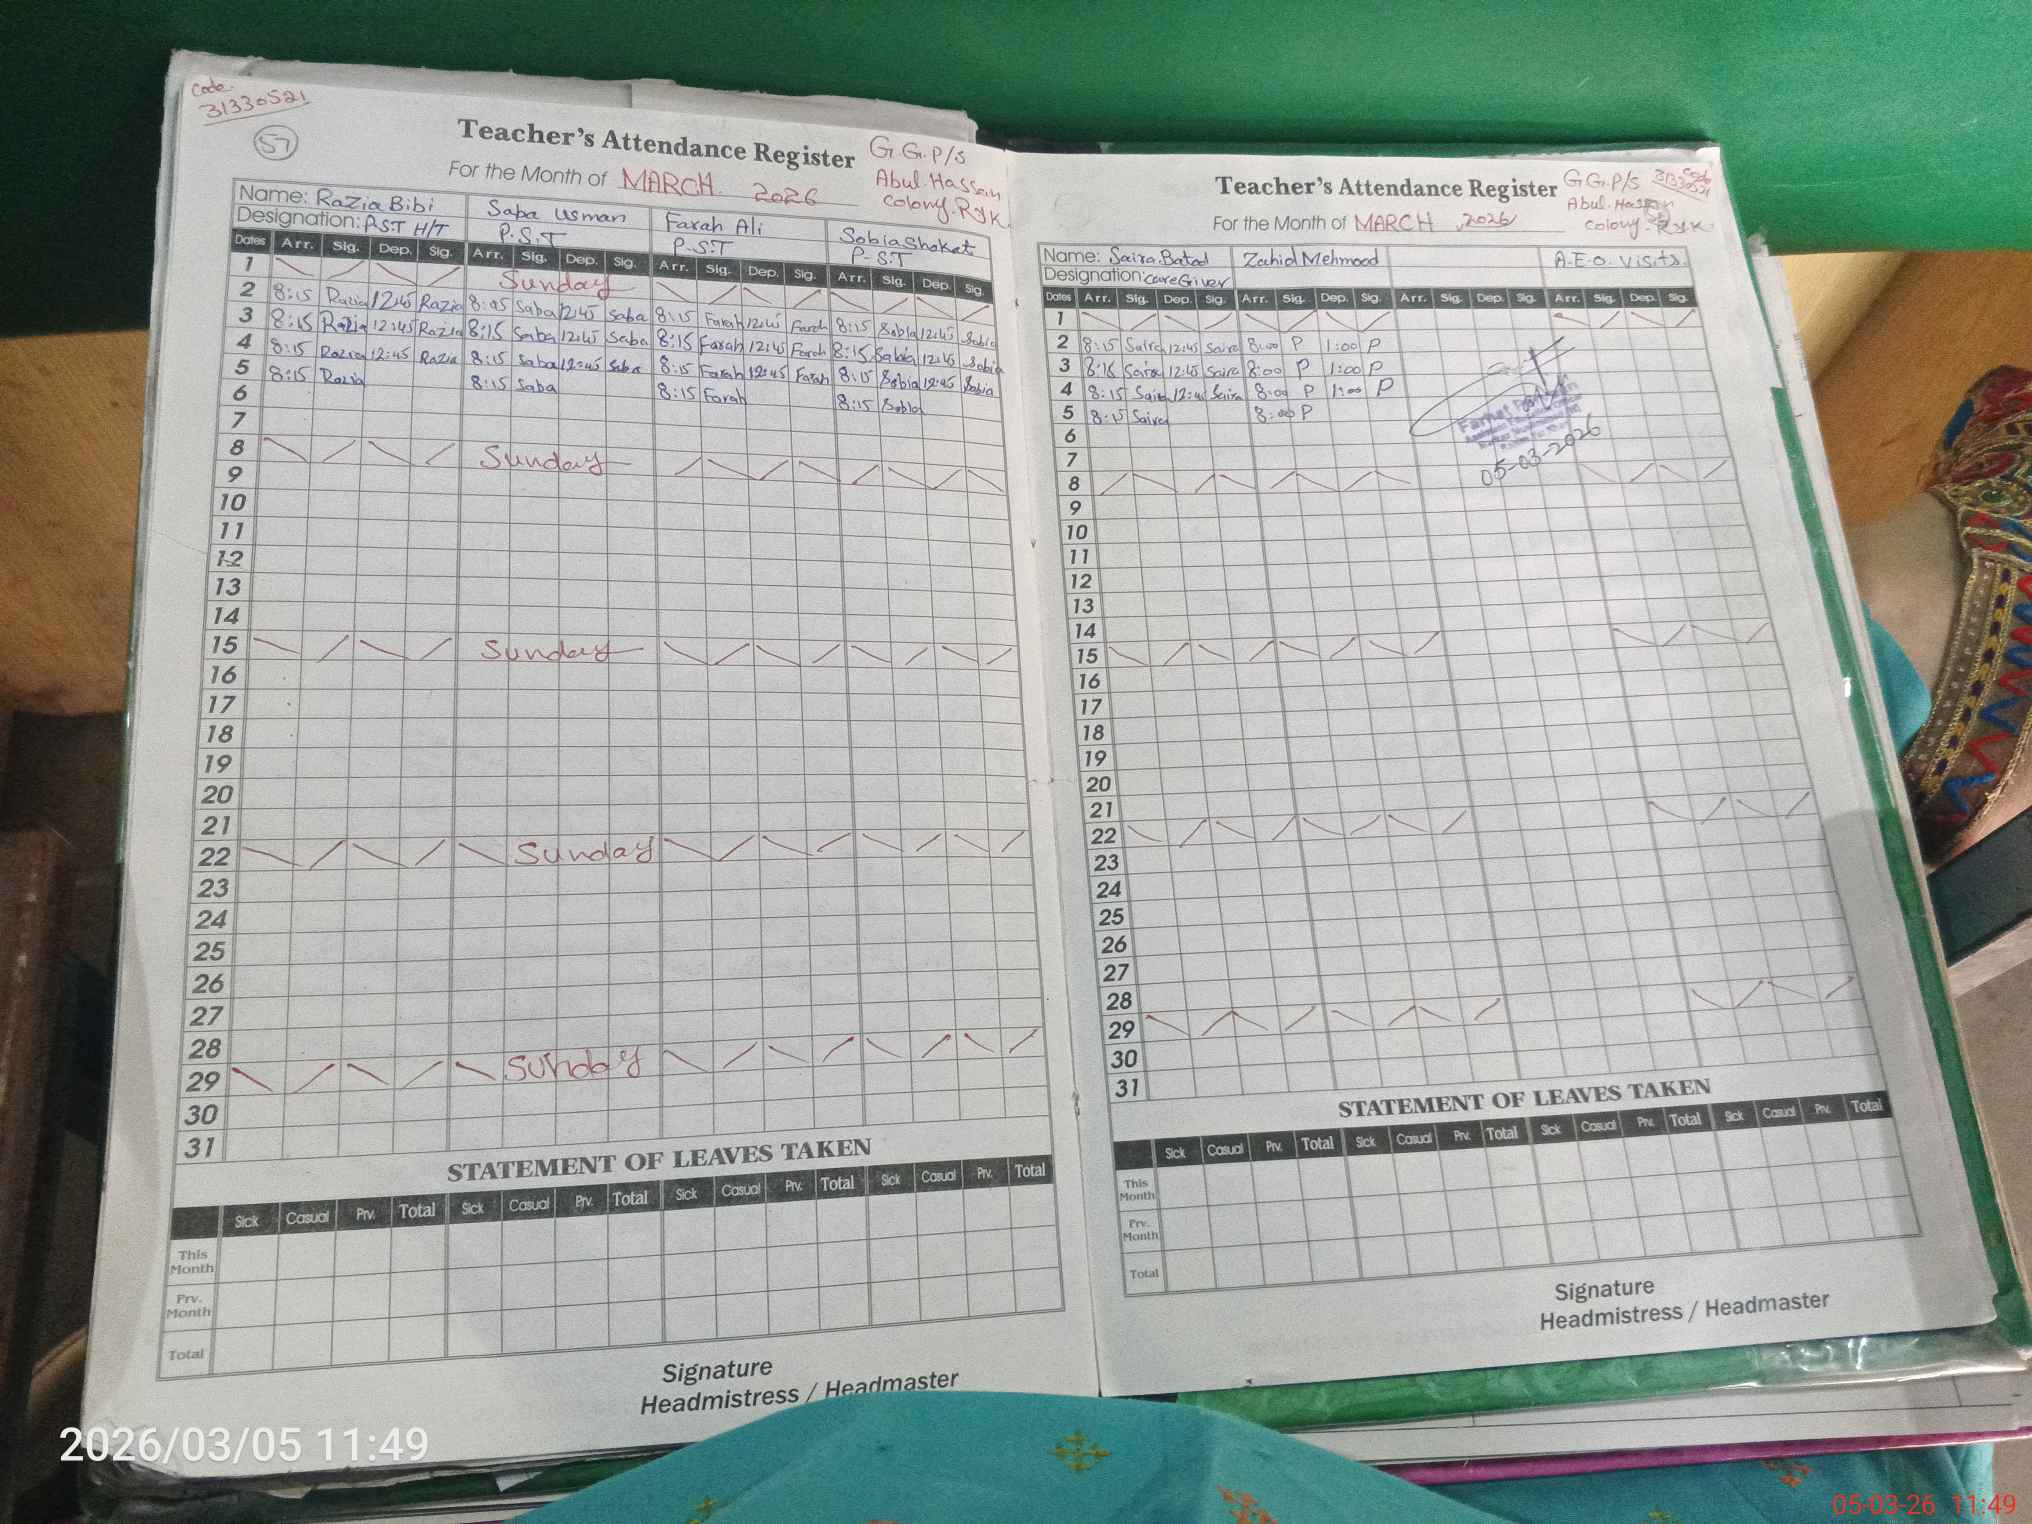 code
31330521
57
Teacher's Attendance Register
G.G.P/S
Abul.Hassan
colony.Ryk.
For the Month of MARCH 2026
Name: Razia Bibi Saba Usman Farah Ali Sobia Shokat
Designation: P.S.T H/T P.S.T P.S.T P.S.T
Dates Arr. Sig. Dep. Sig. Arr. Sig. Dep. Sig. Arr. Sig. Dep. Sig. Arr. Sig. Dep. Sig.
1 Sunday
2 8:15 Razia 12:45 Razia 8:15 Saba 12:45 Saba 8:15 Farah 12:45 Farah 8:15 Sobia 12:45 Sobia
3 8:15 Razia 12:45 Razia 8:15 Saba 12:45 Saba 8:15 Farah 12:45 Farah 8:15 Sobia 12:45 Sobia
4 8:15 Razia 12:45 Razia 8:15 Saba 12:45 Saba 8:15 Farah 12:45 Farah 8:15 Sobia 12:45 Sobia
5 8:15 Razia 8:15 Saba 8:15 Farah 8:15 Sobia
6
7
8 Sunday
9
10
11
12
13
14
15 Sunday
16
17
18
19
20
21
22 Sunday
23
24
25
26
27
28
29 Sunday
30
31
STATEMENT OF LEAVES TAKEN
Sick Casual Prv. Total Sick Casual Prv. Total Sick Casual Prv. Total Sick Casual Prv. Total
This Month
Prv. Month
Total
Signature
Headmistress / Headmaster
Teacher's Attendance Register
GG.P/S
Code
31330521
Abul.Hassan
colony.Ryk.
For the Month of MARCH 2026
Name: Saira.Batool Zahid Mehmood A.E.O. Visits.
Designation: care Giver
Dates Arr. Sig. Dep. Sig. Arr. Sig. Dep. Sig. Arr. Sig. Dep. Sig. Arr. Sig. Dep. Sig.
1
2 8:15 Saira 12:45 Saira 8:00 P 1:00 P
3 8:15 Saira 12:45 Saira 8:00 P 1:00 P
4 8:15 Saira 12:45 Saira 8:00 P 1:00 P
5 8:15 Saira 8:00 P
05-03-2026
6
7
8
9
10
11
12
13
14
15
16
17
18
19
20
21
22
23
24
25
26
27
28
29
30
31
STATEMENT OF LEAVES TAKEN
Sick Casual Prv. Total Sick Casual Prv. Total Sick Casual Prv. Total Sick Casual Prv. Total
This Month
Prv. Month
Total
Signature
Headmistress / Headmaster
2026/03/05 11:49
05-03-26 11:49